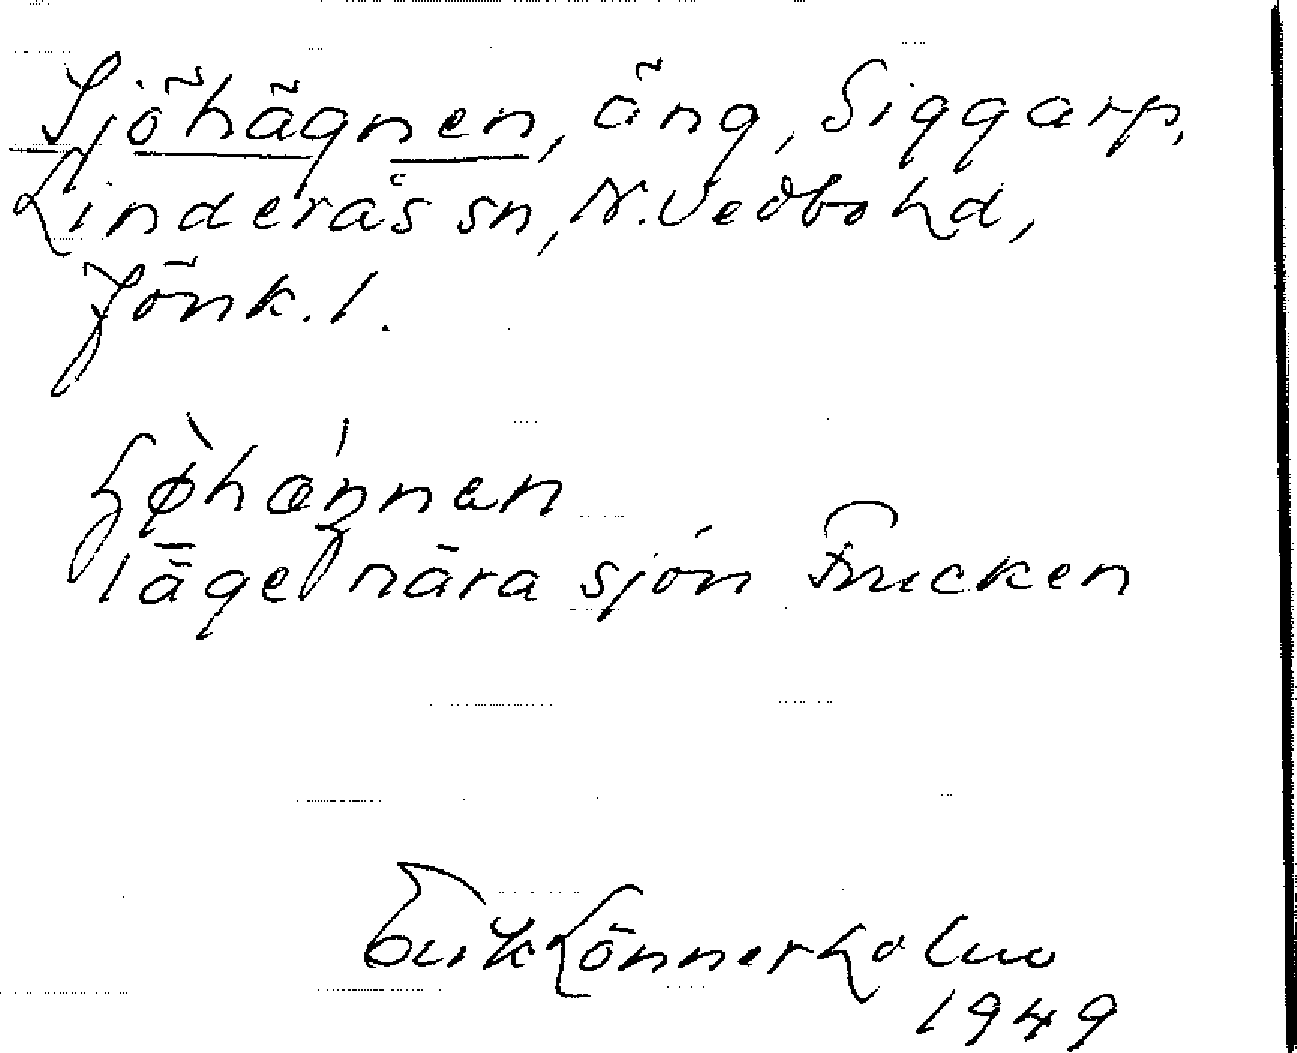 Sjöhägnen, äng, Siggarp,
Linderås sn, N. Vedbo hd,
Jönk. l.
läget nära sjön Frucken
Erik Lönnerholm
1949